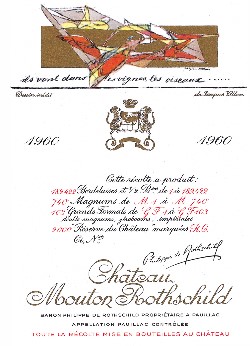 dans les vignes les oiseaux ......
Dessin inédit de Jacques Villon
1960 1960
Cette récolte a produit:
de 1 à
740 Magnums de M 1 à M 740
Grands Formats de G.F 1 à G.F
2000 Réserve du Château marquées R.C.
Ci, Nº
Philippe de Rothschild
Château
Mouton Rothschild
BARON PHILIPPE DE ROTHSCHILD PROPRIÉTAIRE A PAUILLAC
APPELLATION PAUILLAC CONTRÔLÉE
TOUTE LA RÉCOLTE MISE EN BOUTEILLES AU CHÂTEAU